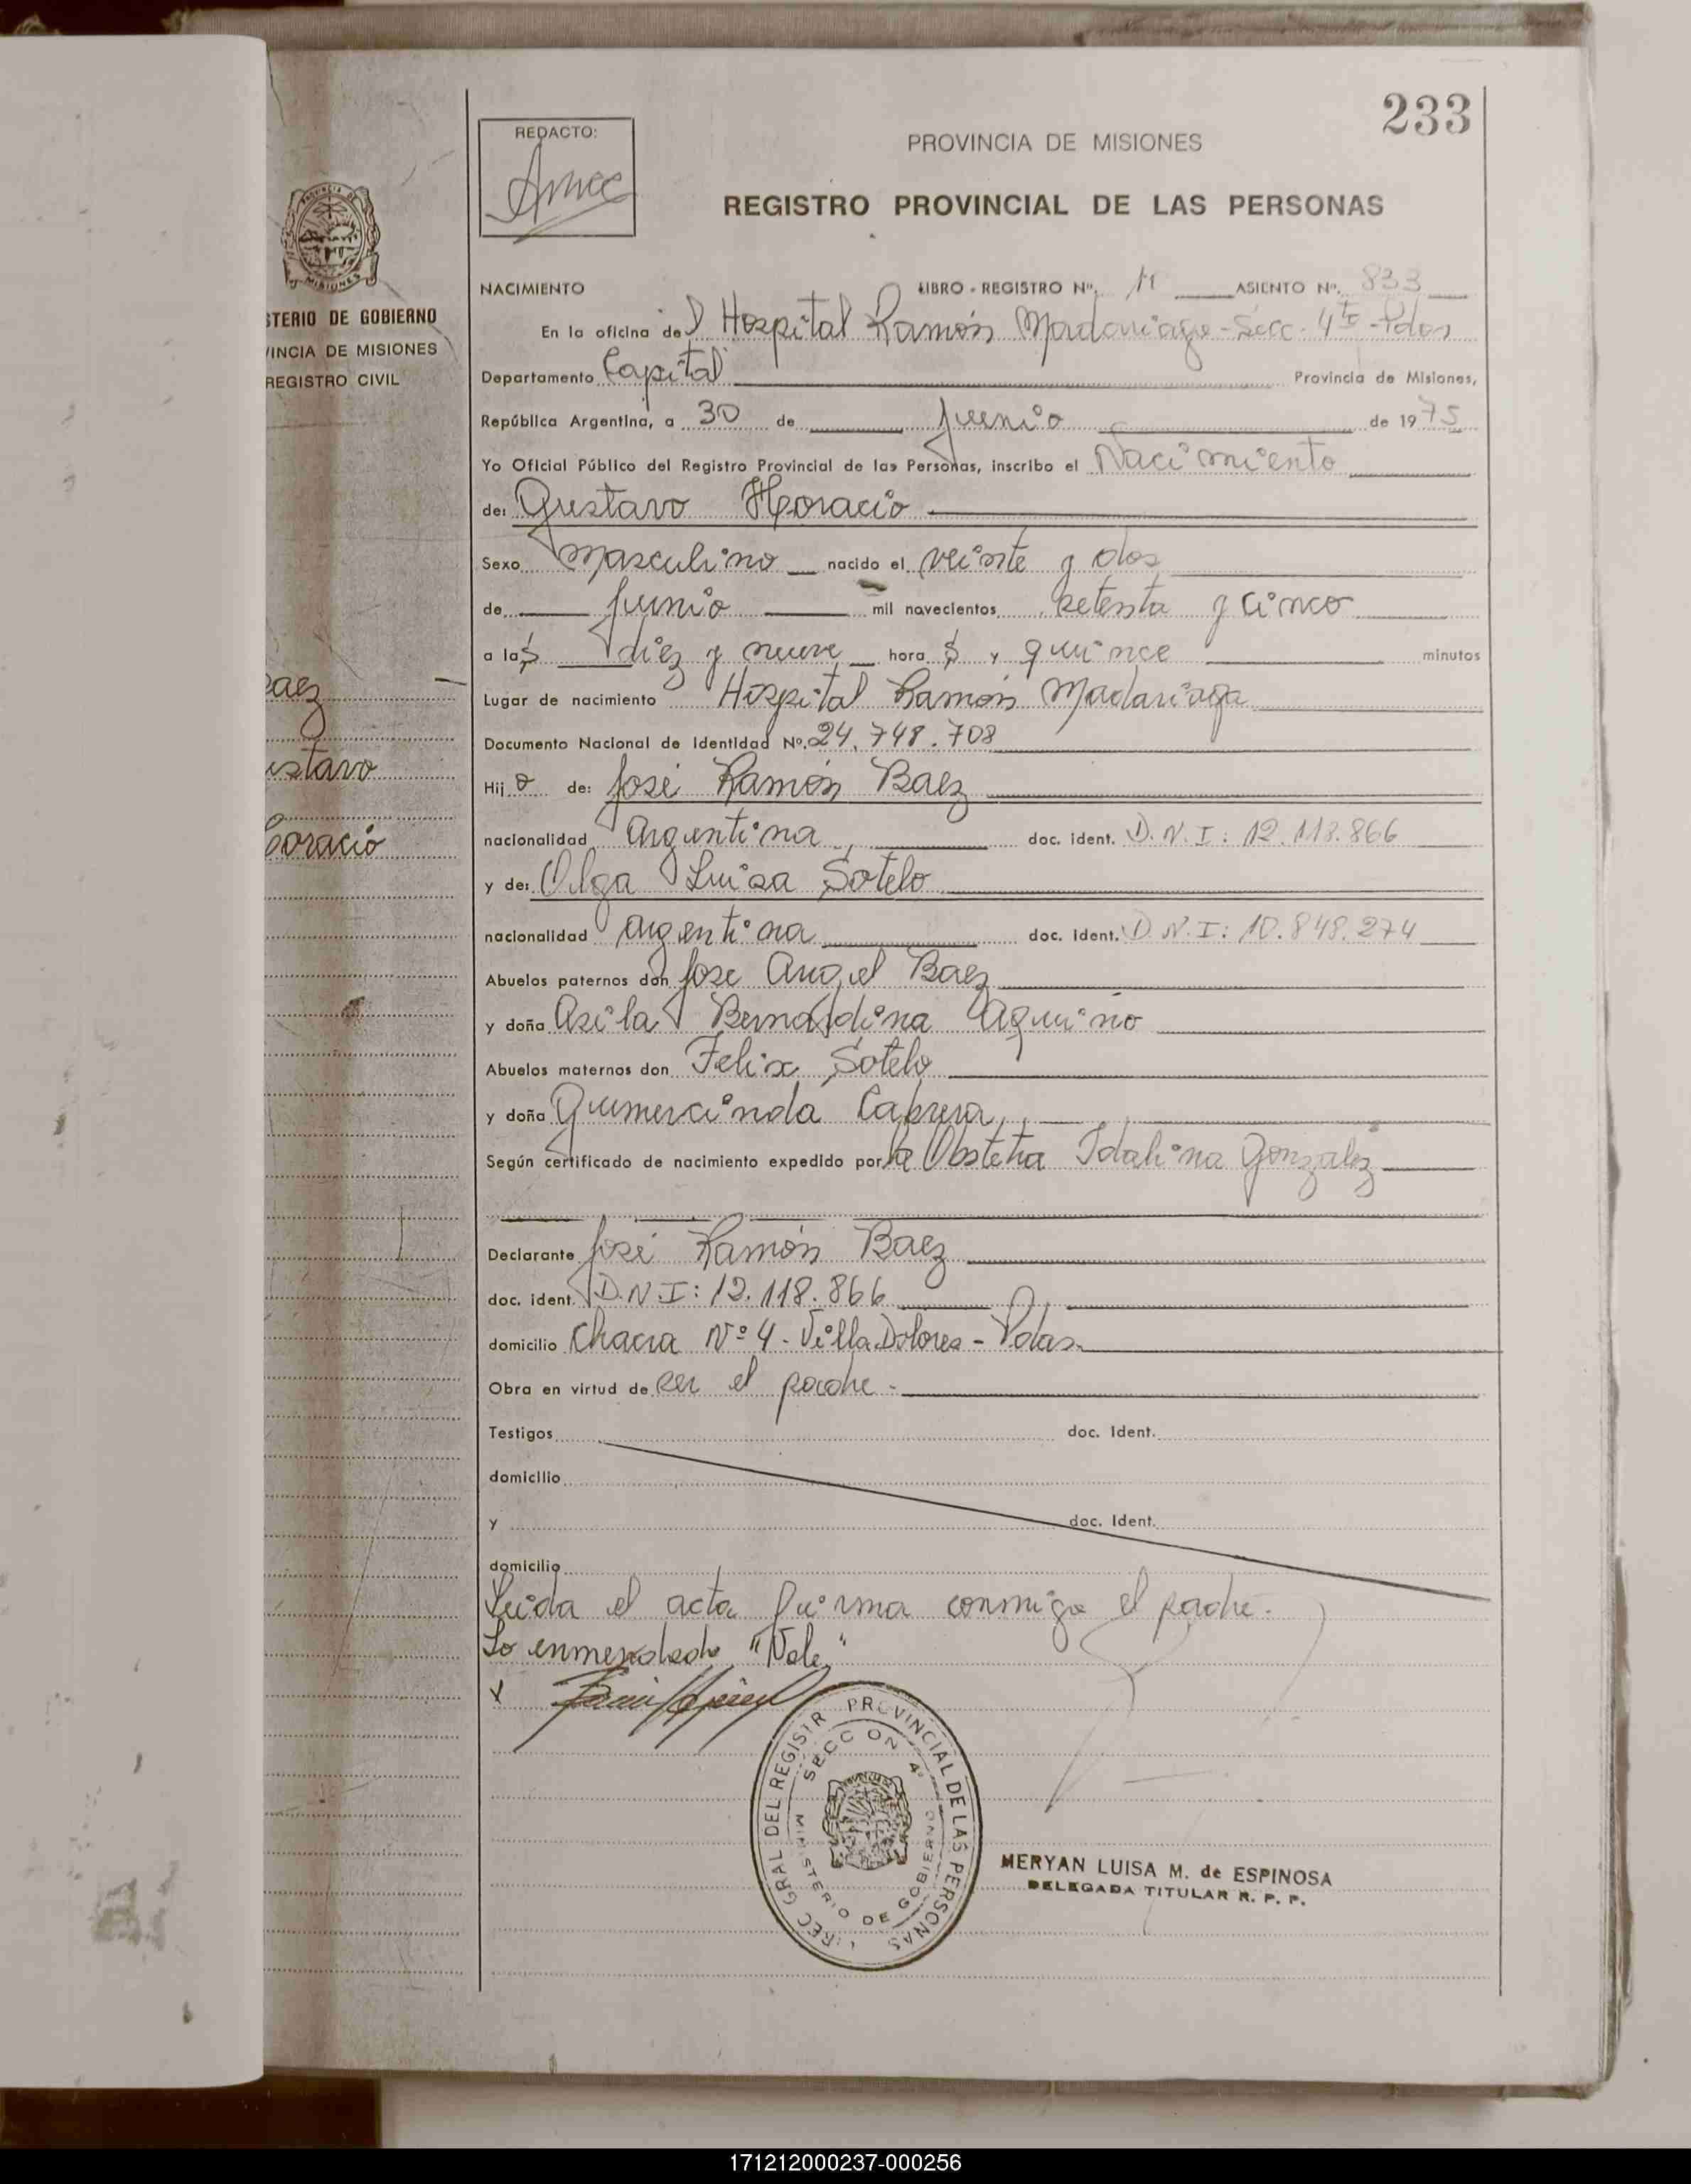 233
REDACTO:
PROVINCIA DE MISIONES
REGISTRO PROVINCIAL DE LAS PERSONAS
STERIO DE GOBIERNO
VINCIA DE MISIONES
REGISTRO CIVIL
NACIMIENTO LIBRO - REGISTRO Nº. 11 ASIENTO Nº. 833
En la oficina del Hospital Ramón Madariaga - Secc. 4ta - Pdas
Departamento Capital Provincia de Misiones,
República Argentina, a 30 de junio de 1975
Yo Oficial Público del Registro Provincial de las Personas, inscribo el Nacimiento
de: Gustavo Horacio
Sexo masculino nacido el veinte y dos
de junio mil novecientos setenta y cinco
a las diez y nueve hora s y quince minutos
aez
Lugar de nacimiento Hospital Ramón Madariaga
Documento Nacional de Identidad Nº. 24.748.708
ustavo
Hij o de: José Ramón Baez
oracio
nacionalidad argentina doc. ident. D.N.I: 12.118.866
y de: Olga Luisa Sotelo
nacionalidad argentina doc. ident. D.N.I: 10.848.274
Abuelos paternos don Jose Angel Baez
y doña Asila Bernardina Aquino
Abuelos maternos don Felix Sotelo
y doña Gumercinda Cabrera
Según certificado de nacimiento expedido por la Obstetra Idalina Gonzalez
Declarante José Ramón Baez
doc. ident. D.N.I: 12.118.866
domicilio Chacra Nº 4 - Villa Dolores - Pdas.
Obra en virtud de ser el padre.
Testigos doc. Ident.
domicilio
y doc. Ident.
domicilio
Leida el acta firma conmigo el padre.
Lo enmendado "Vale"
x
REC GRAL DEL REGISTR PROVINCIAL DE LAS PERSONAS
SECCION 4ª
MINISTERIO DE GOBIERNO
MERYAN LUISA M. de ESPINOSA
DELEGADA TITULAR R. P. P.
171212000237-000256